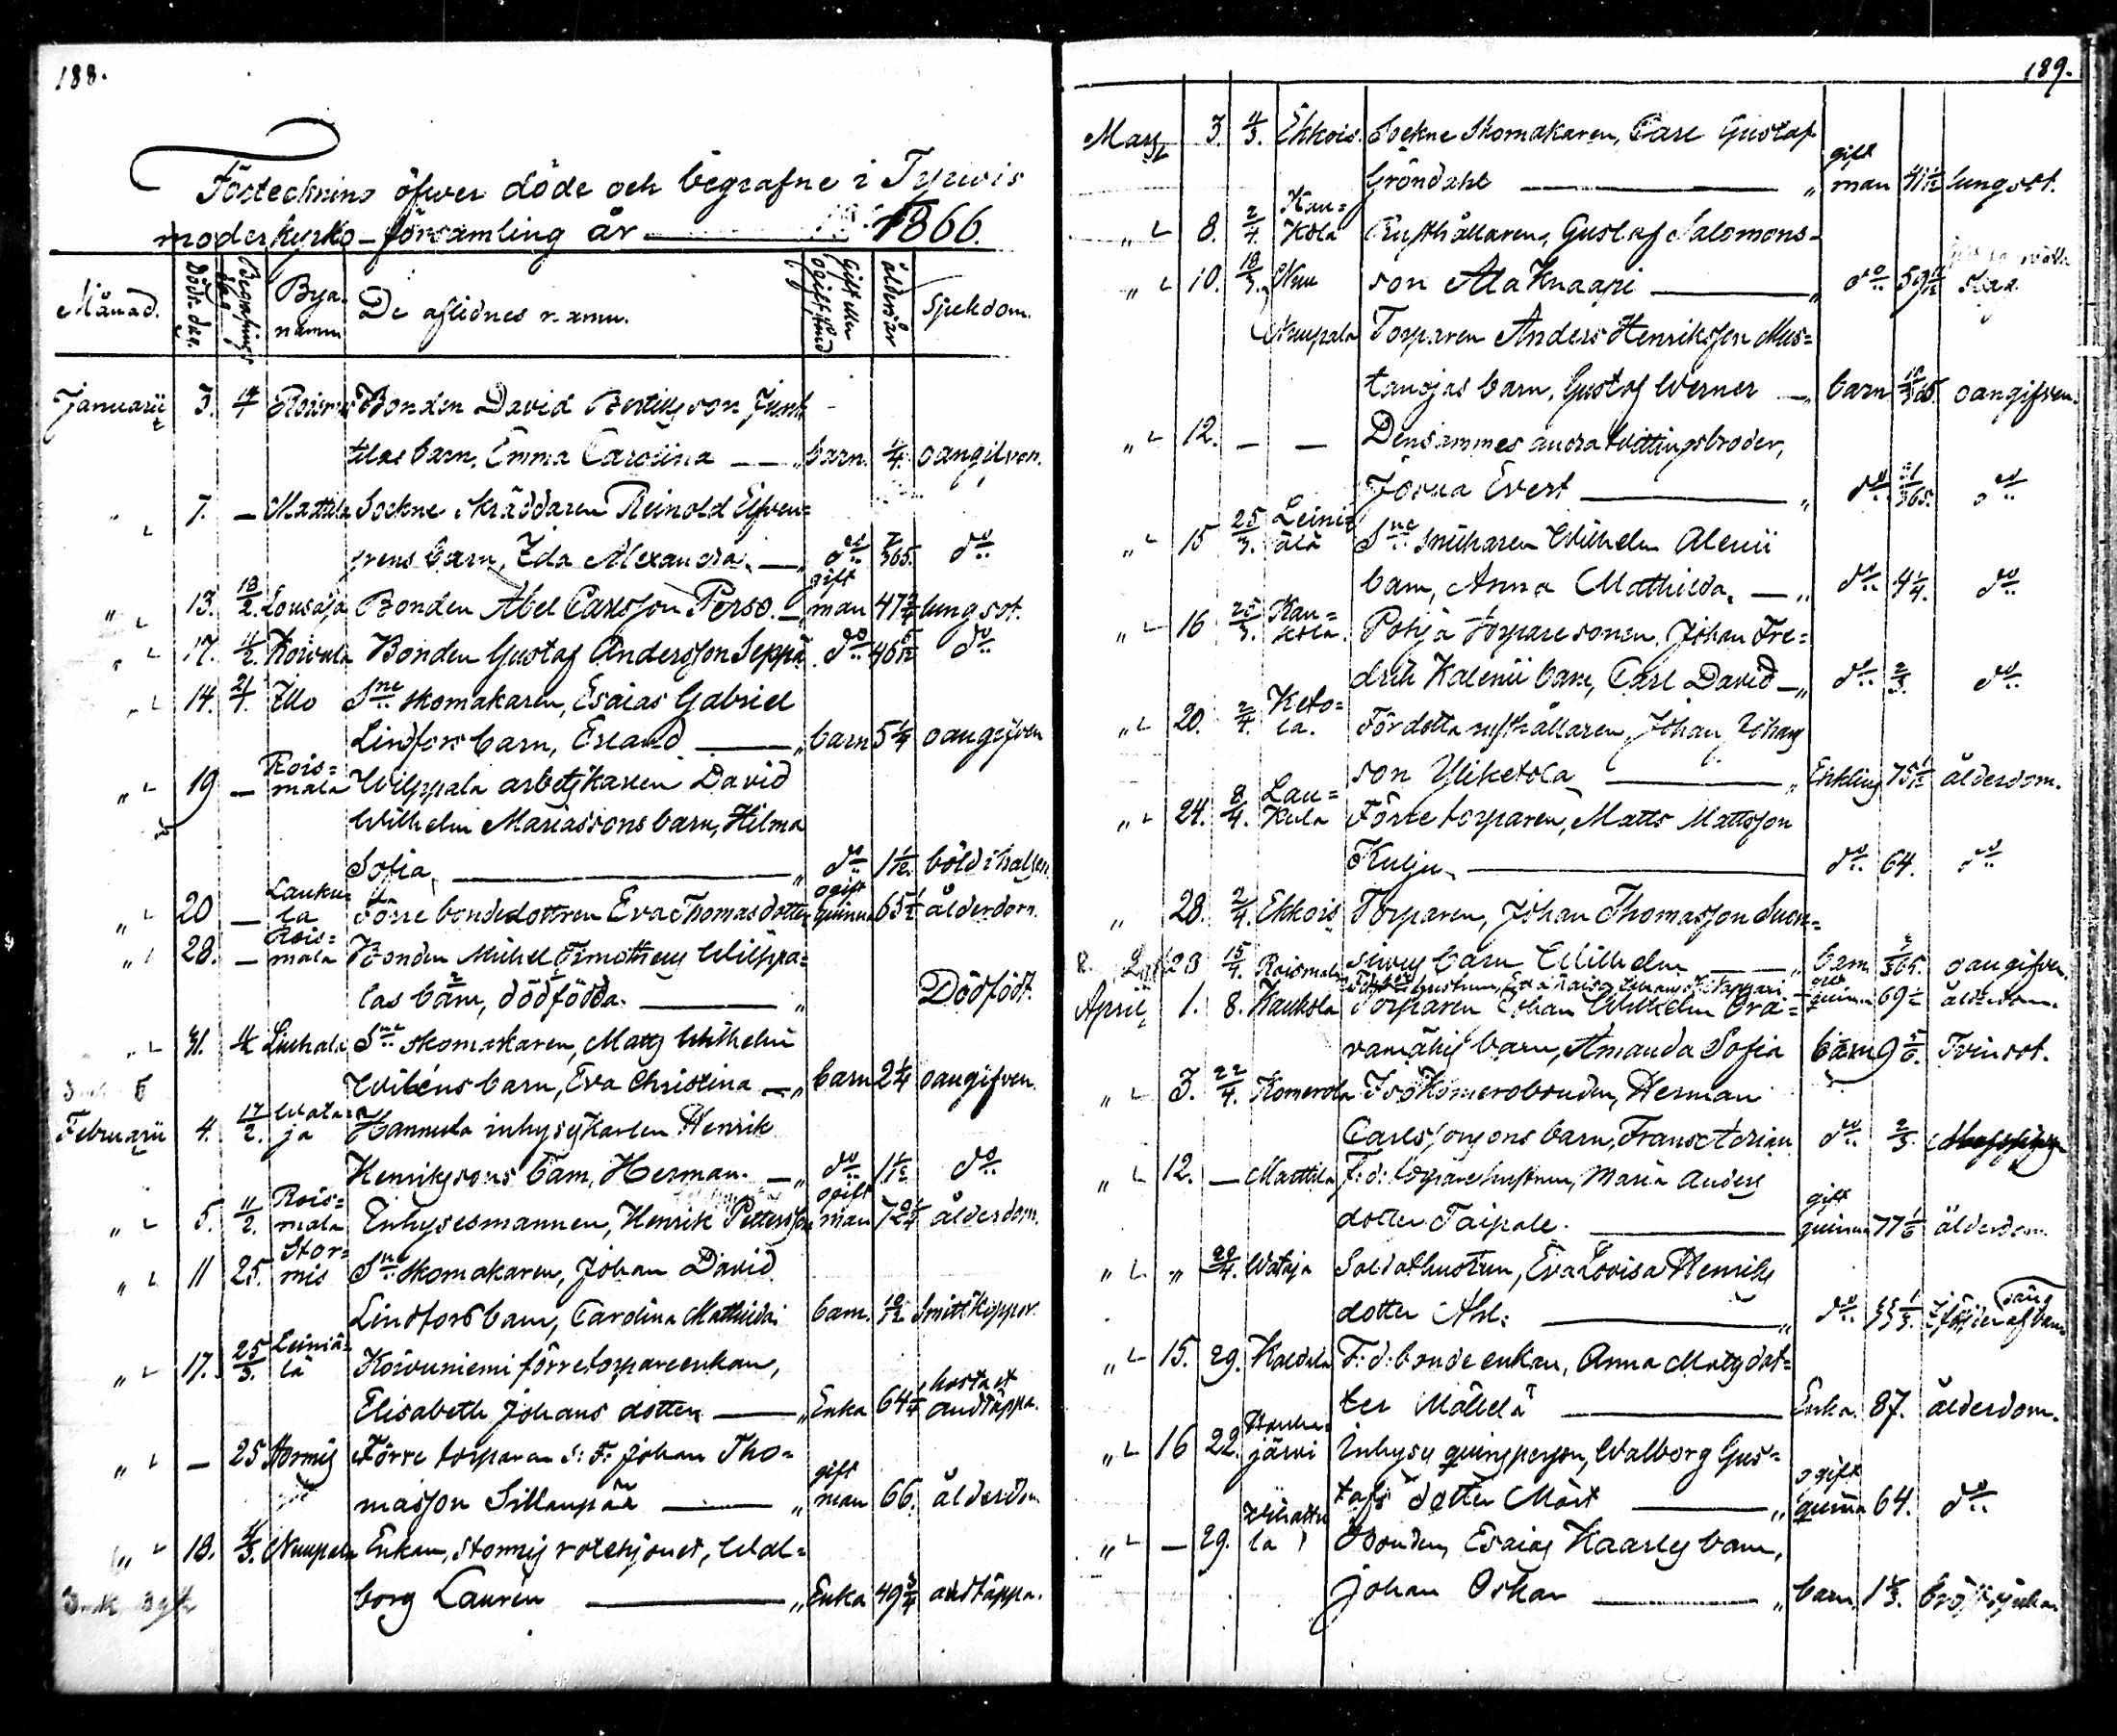 188.
Förteckning öfwer döde och begrafne i Tyrwis
moderkyrko-församling år 1866.
Månad. Döds-dag. Begrafnings dag Bya namn De aflidnes namn. Gift eller ogift, stånd ålder i år Sjukdom.
Januarii 3. 14/1 Bonden David
tilas barn, Emma Carolina — „ barn. 1/4. oangifven.
„ 7. — Mattila Sockne Skräddaren Reinold Elfven=
grens barn, Ida Alexandra. — „ do 7/365. do
„ 13. 18/2. Lousaja Bonden Abel Carlsson Perso. — gift man 47 3/4 lungsot.
„ 17. 11/2. Koivula Bonden Gustaf Andersson Seppä. do 46 5/12 do
„ 14. 21/1. Illo Sne skomakaren, Esaias Gabriel
Lindfors barn, Erland — „ barn 5 1/4 oangifven
„ 19 — Rois= mala Wilppala arbetskarlen David
Wilhelm Mariassons barn, Hilma
Sofia, — „ do 1 1/12. böld i halsen
„ 20 — Lauku= la Förre bondedottren Eva Thomasdotter ogift quinna 65 1/2 ålderdom.
„ 28. — Rois= mala Bonden Michel Timotheus Wilppa=
las barn, dödfödda. — „ Dödfödt.
„ 31. Liuhala Sne skomakaren, Matts Wilhelm
Wiléns barn, Eva Christina — „ barn 2 1/4 oangifven.
Februarii 4. 17/2. Wata= ja Hannula inhyseskarlen Henrik
Henrikssons barn, Herman. — „ do 1 1/12 do
„ 5. 11/2. Rois= mala Inhysesmannen, Henrik Pettersson ogift man ålderdom.
„ 11 25. Stor= mis Sne skomakaren, Johan David
Lindfors barn, Carolina Mathilda. barn. 10/12 Smittkoppor.
„ 17. 25/3. Leiniä= lä Koivuniemi förre torpareenkan,
Elisabeth Johans dotter — „ Enka 64 1/4 hosta et andtäppa.
„ — 25 Stormis Förre torparen S: F: Johan Tho=
masson Sillanpää — „ gift man 66. ålderdom
„ 18. 4/3. Nuupala Enkan, Stormis rotehjonet, Wal=
borg Laurén — „ Enka 49 3/4 andtäppa.
189.
Mars 3. 4/3. Ekkois. Sockne Skomakaren, Carl Gustaf
Gröndahl — „ gift man 41 1/12 lungsot.
„ 8. 2/4. Kau= kola Rusthållaren, Gustaf Salomons-
„ 10. 18/3. Nuu son Ala Knaapi — „ do
Nuupala Torparen Anders Henriksson Mus=
tanojas barn, Gustaf Werner — „ barn 10/365. oangifven.
„ 12. — — Densammes andra twillingsbroder,
Josua Evert — „ do do
„ 15 25/3. Leini= älä Sne snickaren Wilhelm Alenii
barn, Anna Mathilda. — „ do 4 1/4. do
„ 16 25/3. Kau= kola. Pohja torparesonen, Johan Fre=
drik Kalenii barn, Carl David — „ do 2/3. do
„ 20. 2/4. Keto= la. Fördetta rusthållaren, Johan Johans
son Yliketola — „ Enkling 75 1/12 ålderdom.
„ 24. 8/4. Lau= kula Förre torparen, Matts Mattsson
Kulju, — do 64. do
„ 28. 2/4. Ekkois Torparen, Johan Thomasson Suon=
23 15/4. Roismala barn Wilhelm — „ barn 2/365. oangifven
April 1. 8. Kaukola Torparen Johan Wilhelm Ora=
barn, Amanda Sofia barn 9 5/6. Tvinsot.
„ 3. 22/4. Komerola Iso Komerobonden, Herman
Carlssons sons barn, Frans Adrian do 2/3.
„ 12. — Marttila F: d: torparehustrun, Maria Anders
dotter Taipale. — gift quinna 77 1/6 ålderdom.
„ „ 22/4. Wataja Soldathustrun, Eva Lovisa Henriks
dotter Ahl: — „ do
„ 15. 29. Kaldala F: d: bonde enkan, Anna Matsdot=
ter Mäkelä — Enka. 87. ålderdom.
„ 16 22. järvi Inhyses quinsperson, Walborg Gus=
tafs dotter Mört — „ ogift quinna 64. do
„ — 29. la Bonden, Esaias Kaarles barn,
Johan Oskar — „ barn. 1 1/3. bröstsjukan